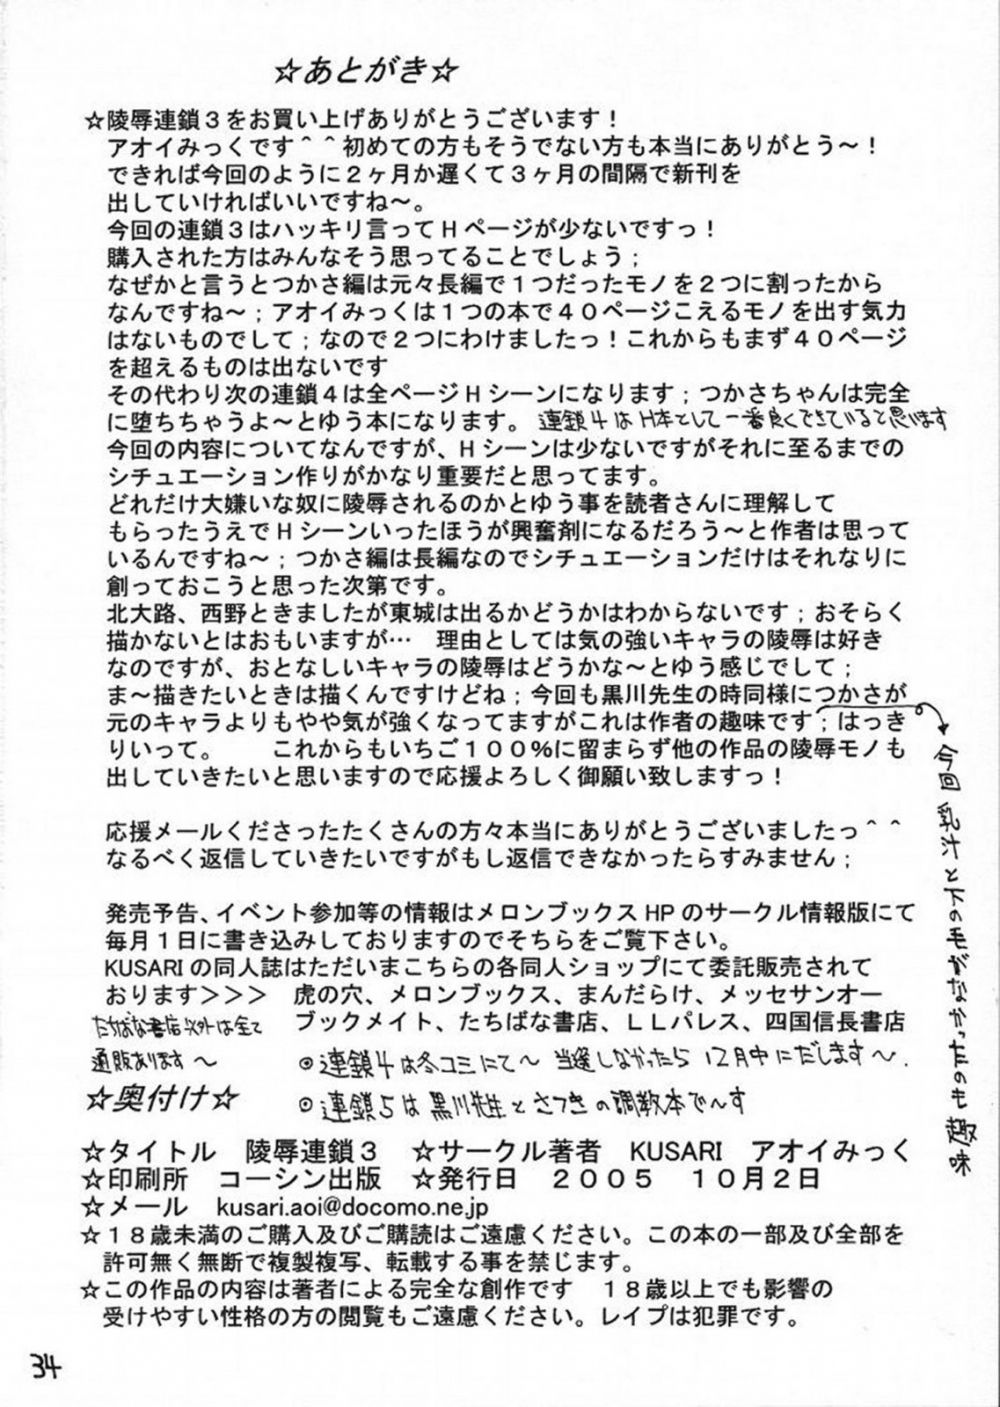 ☆あとがき☆
☆陵辱連鎖３をお買い上げありがとうございます！
アオイみっくです＾＾初めての方もそうでない方も本当にありがとう～！
できれば今回のように２ヶ月か遅くて３ヶ月の間隔で新刊を
出していければいいですね～。
今回の連鎖３はハッキリ言ってＨページが少ないですっ！
購入された方はみんなそう思ってることでしょう；
なぜかと言うとつかさ編は元々長編で１つだったモノを２つに割ったから
なんですね～；アオイみっくは１つの本で４０ページこえるモノを出す気力
はないものでして；なので２つにわけましたっ！これからもまず４０ページ
を超えるものは出ないです
その代わり次の連鎖４は全ページＨシーンになります；つかさちゃんは完全
に堕ちちゃうよ～とゆう本になります。 連鎖４はＨ本として一番良くできていると思います
今回の内容についてなんですが、Ｈシーンは少ないですがそれに至るまでの
シチュエーション作りがかなり重要だと思ってます。
どれだけ大嫌いな奴に陵辱されるのかとゆう事を読者さんに理解して
もらったうえでＨシーンいったほうが興奮剤になるだろう～と作者は思って
いるんですね～；つかさ編は長編なのでシチュエーションだけはそれなりに
創っておこうと思った次第です。
北大路、西野ときましたが東城は出るかどうかはわからないです；おそらく
描かないとはおもいますが… 理由としては気の強いキャラの陵辱は好き
なのですが、おとなしいキャラの陵辱はどうかな～とゆう感じでして；
ま～描きたいときは描くんですけどね；今回も黒川先生の時同様につかさが
元のキャラよりもやや気が強くなってますがこれは作者の趣味です；はっき
りいって。 これからもいちご１００％に留まらず他の作品の陵辱モノも
出していきたいと思いますので応援よろしく御願い致しますっ！
今回乳汁と下の毛がなかったのも趣味
応援メールくださったたくさんの方々本当にありがとうございましたっ＾＾
なるべく返信していきたいですがもし返信できなかったらすみません；
発売予告、イベント参加等の情報はメロンブックスHPのサークル情報版にて
毎月１日に書き込みしておりますのでそちらをご覧下さい。
KUSARIの同人誌はただいまこちらの各同人ショップにて委託販売されて
おります＞＞＞ 虎の穴、メロンブックス、まんだらけ、メッセサンオー
ブックメイト、たちばな書店、ＬＬパレス、四国信長書店
たちばな書店以外は全て
通販あります～
◎連鎖４は冬コミにて～ 当選しなかったら１２月中にだします～．
◎連鎖５は黒川先生とさつきの調教本で～す
☆奥付け☆
☆タイトル 陵辱連鎖３ ☆サークル著者 KUSARI アオイみっく
☆印刷所 コーシン出版 ☆発行日 ２００５ １０月２日
☆メール kusari.aoi@docomo.ne.jp
☆１８歳未満のご購入及びご購読はご遠慮ください。この本の一部及び全部を
許可無く無断で複製複写、転載する事を禁じます。
☆この作品の内容は著者による完全な創作です １８歳以上でも影響の
受けやすい性格の方の閲覧もご遠慮ください。レイプは犯罪です。
34